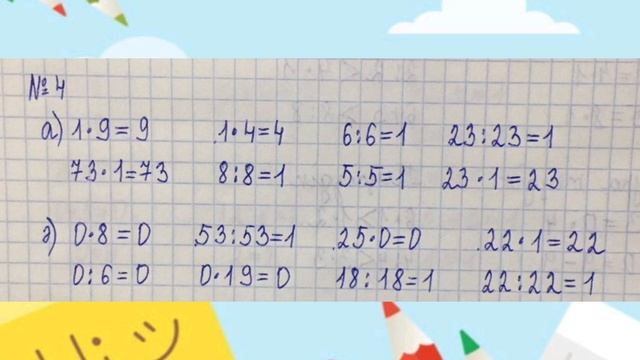 № 4
а) 1·9=9 1·4=4 6:6=1 23:23=1
73·1=73 8:8=1 5:5=1 23·1=23
б) 0·8=0 53:53=1 25·0=0 22·1=22
0:6=0 0·19=0 18:18=1 22:22=1